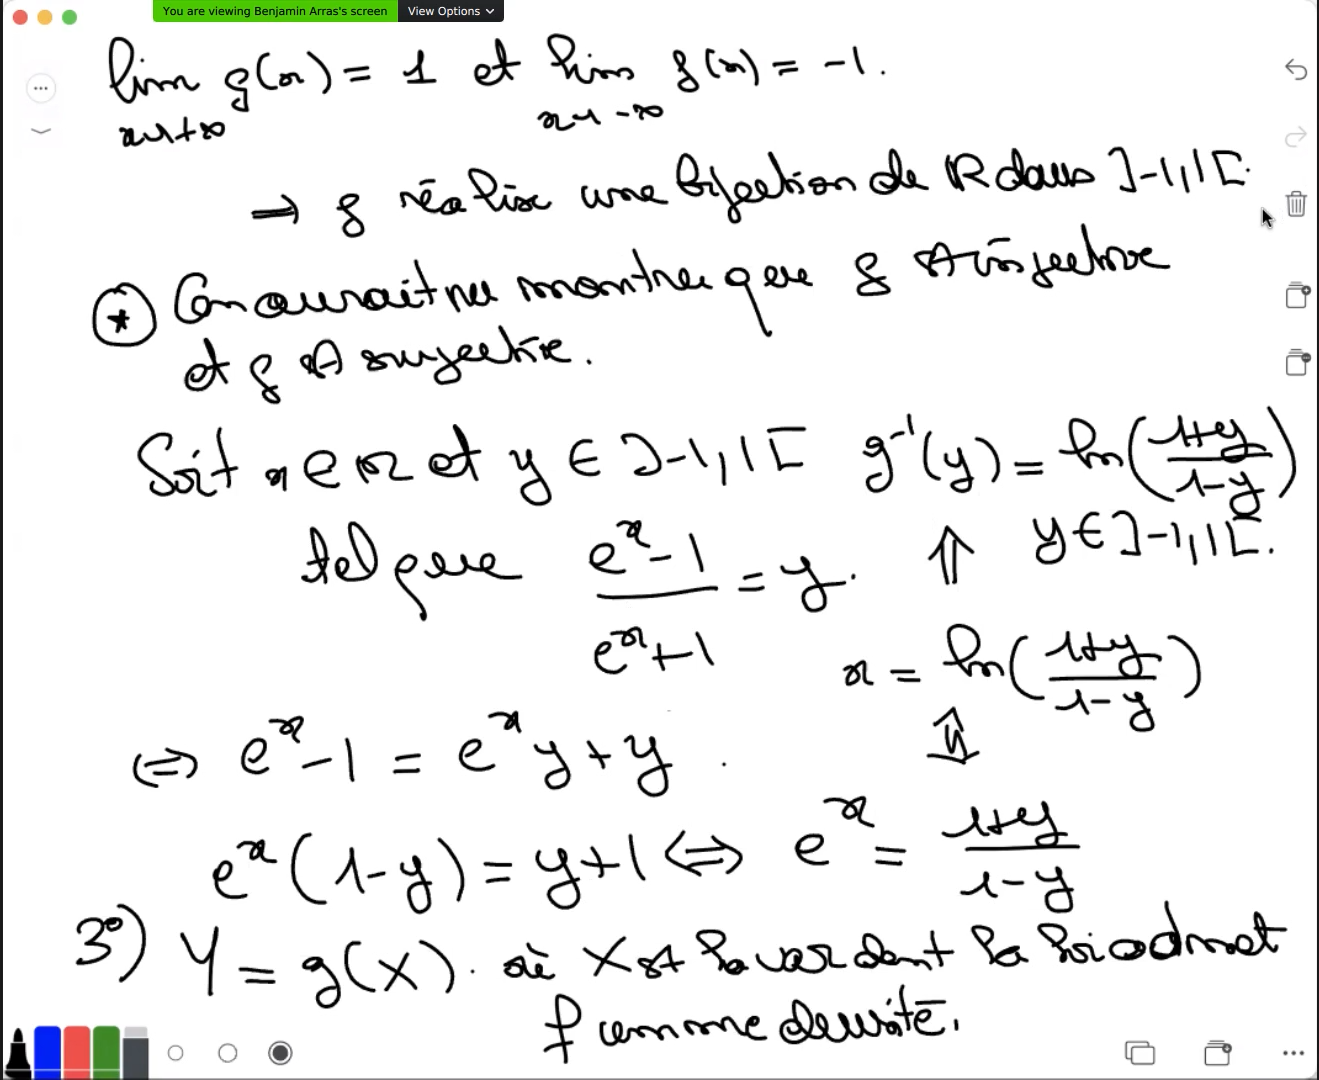 You are viewing Benjamin Arras's screen View Options
lim g(x) = 1 et lim g(x) = -1.
x→+∞ x→-∞
→ g réalise une bijection de R dans ]-1,1[.
* On aurait pu montrer que g est injective
et g est surjective.
Soit x ∈ R et y ∈ ]-1,1[ g⁻¹(y) = ln((1+y)/(1-y))
tel que (e^x - 1)/(e^x + 1) = y. ⇑ y ∈ ]-1,1[.
x = ln((1+y)/(1-y))
⇔ e^x - 1 = e^x y + y . ⇕
e^x (1-y) = y+1 ⇔ e^x = (1+y)/(1-y)
3°) Y = g(X). où X est la var dont la loi admet
f comme densité.